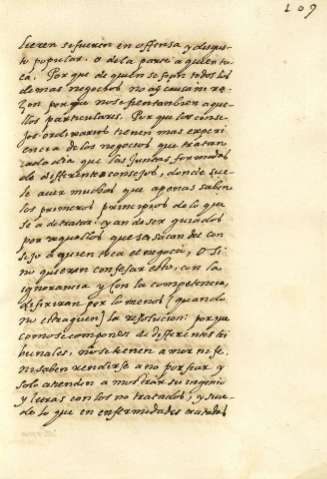 109
sieren se fueron en offensa y disgus
to popular. o de la parte a quien to
ca. Porque de quien se fian todos los
de mas negocios no ay causa ni ra
zon porque no se fien tambien aque
llos particulares. Porque los conse
jos ordinarios tienen mas experi
encia de los negocios que tratan
cada dia que las Juntas formadas
de differentes consejos, donde sue
le auer muchos que apenas saben
los primeros principios de lo que
se a de tratar: y an de ser guiados
por aquellos que se sacan del con
sejo a quien toca el negocio, o si
no quieren confesar esto, con la
ignorancia y con la competencia,
deferiran por lo menos (quando
no estraguen) la resolucion: porque
como se componen de differentes tri
bunales, no se tienen amor ni fe,
ni saben rendirse a no porfiar y
solo atienden a mostrar su ingenio
y letras con los no tratados, y suce
de lo que en enfermedades tratados